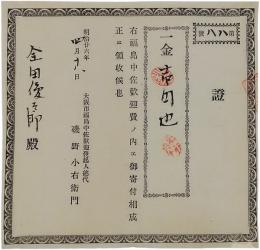 第八八號
證
一金壱円也
右福島中佐歡迎費ノ内エ御寄付相成
正ニ領收候也
明治廿六年
四月
大阪市福島中佐歡迎發起人總代
磯野小右衛門
殿